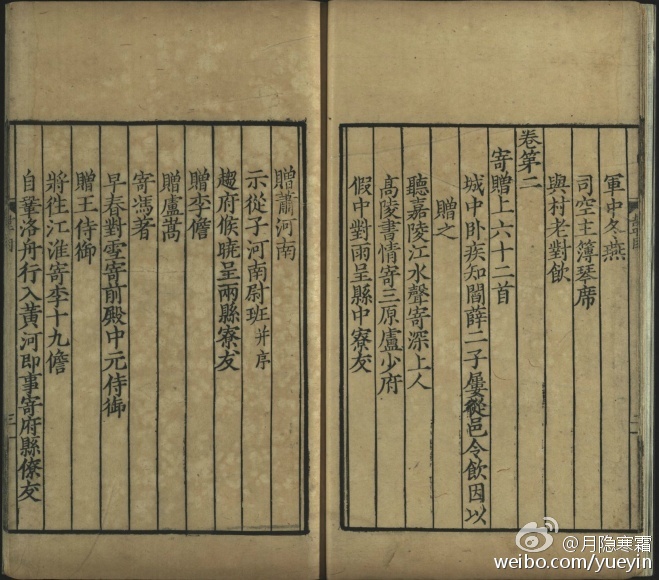 軍中冬燕
司空主簿琴席
與村老對飲
卷第二
寄贈上六十二首
城中卧疾知閻薛二子屢從邑令飲因以
贈之
聽嘉陵江水聲寄深上人
高陵書情寄三原盧少府
假中對雨呈縣中寮友
二
贈蕭河南
示從子河南尉班并序
趨府候曉呈兩縣寮友
贈李儋
贈盧嵩
寄馮著
早春對雪寄前殿中元侍御
贈王侍御
將往江淮寄李十九儋
自鞏洛舟行入黃河即事寄府縣僚友
三
@月隐寒霜
weibo.com/yueyin